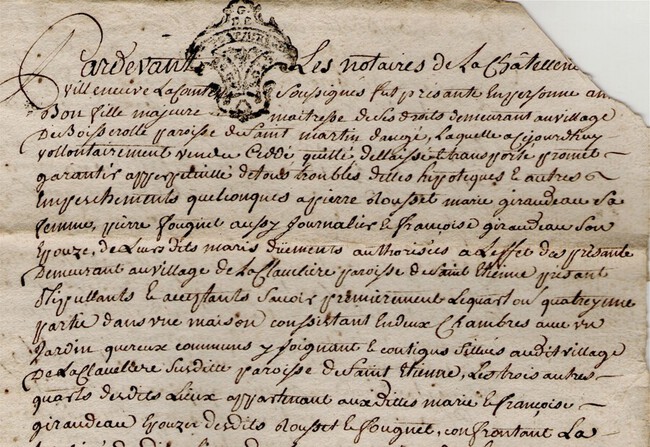 G
Pardevant Les notaires de La Châtellenie
villeneuve La Comtesse Soussignés fut présante En personne
fille majure maitresse de ses droits demeurant au village
De Boisserolle paroisse de Saint martin daugé, Laquelle a cejourdhuy
vollontairement vendu Ceddé, quitté dellaissé & transporté promet
garantir a perpetuitté de tous troubles dittes hipoteques & autres
Empeschements quelconques a pierre Rousset marie giraudeau sa
femme, pierre fouquet aussy Journalier & françoise giraudeau Son
Epouze, de Leurs dits maris düements authorisées a L'effet des présante
Demeurant au village de La Clavelière paroisse de Saint Etienne présant
Stipullants & acceptants Savoir premierement Le quart ou quatreyme
partie dans une maison consistant En deux Chambres avec un
Jardin quereux communs y Joignant & contigus sittués audit village
De La Clavellere Susditte paroisse de Saint Etienne, Les trois autres
quarts desdits Lieux appartenant aux dittes marie & françoise
giraudeau Epouzes desdits Rousset & fouquet, confrontant La